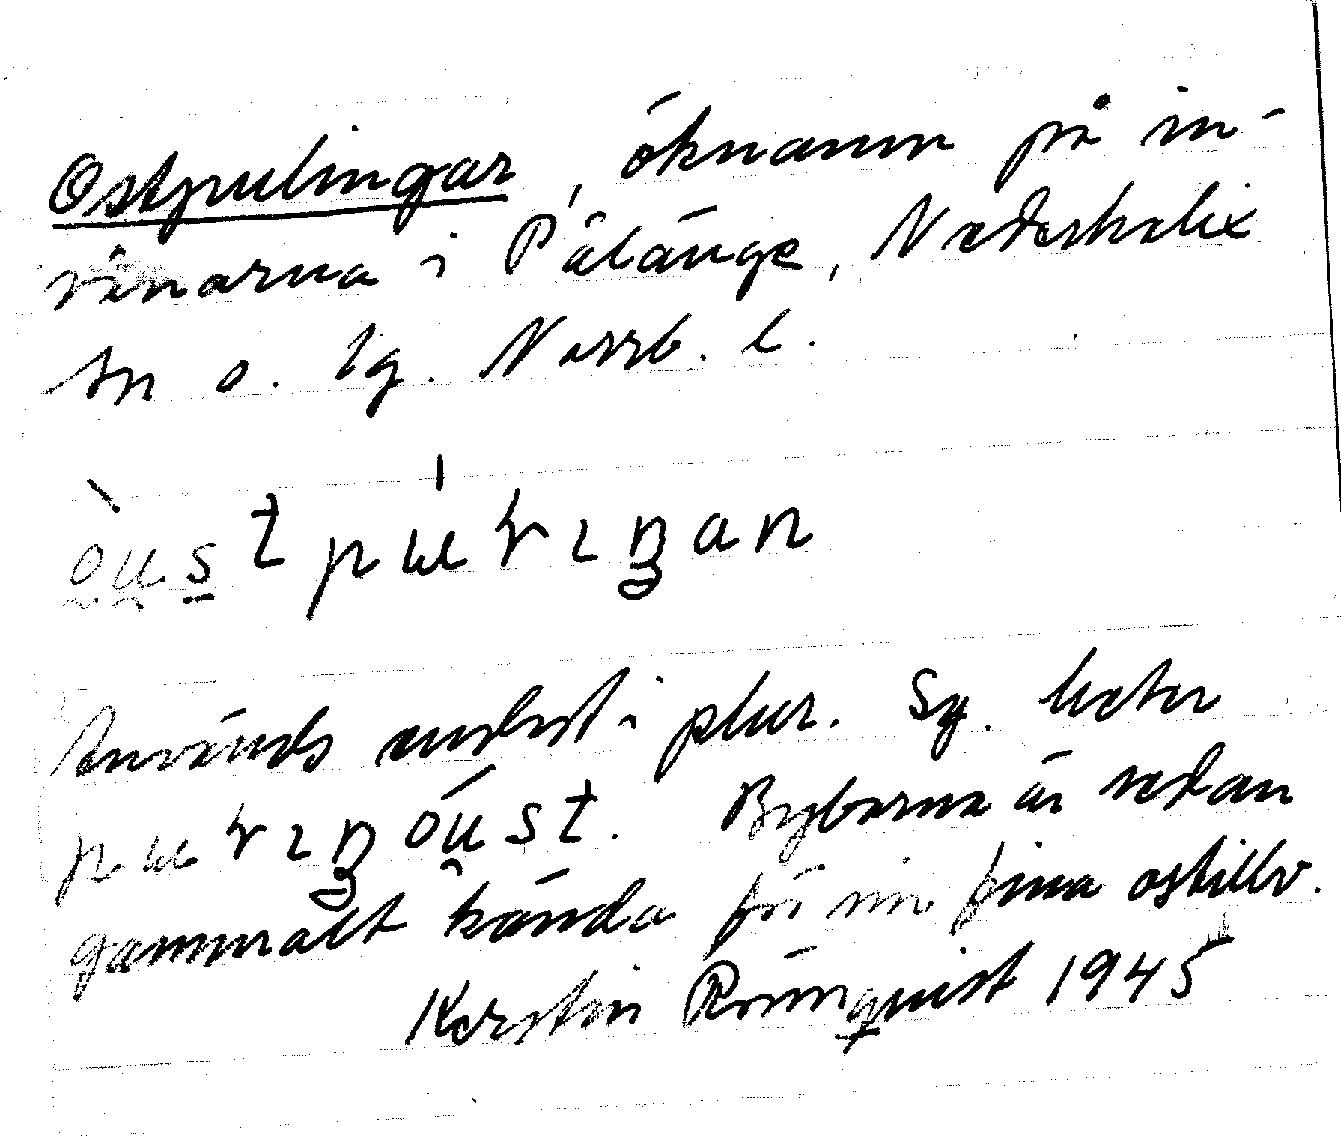 Ostpulingar, öknamn på in-
vånarna i Pålänge, Nederkalix
sn o. tg. Norrb. l.
Används endast i plur. Sg. heter
Byborna är sedan
gammalt kända för sin fina osttillv.
Kerstin Rönnquist 1945